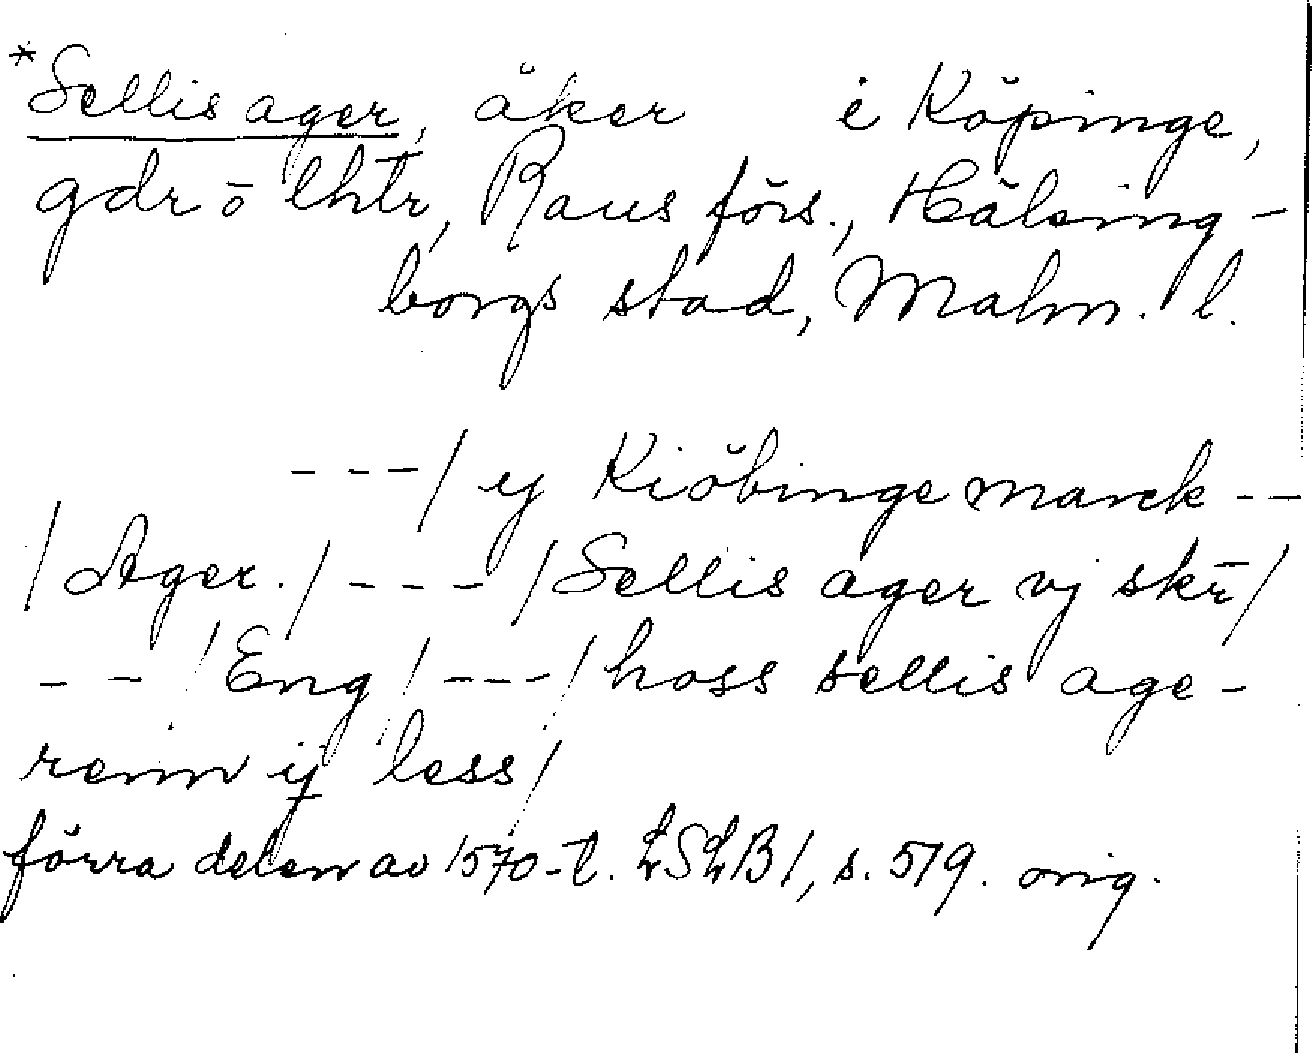 *Sellis ager, åker i Köpinge,
gdr o lhtr, Raus förs., Hälsing-
borgs stad, Malm. l.
---/ ij Kiöbinge marck --
/Ager./ --- /Sellis ager vj skr/
-- /Eng/ --- /hoss sellis age-
renn ij less/
förra delen av 1570-t. LSLB1, s. 519. orig.